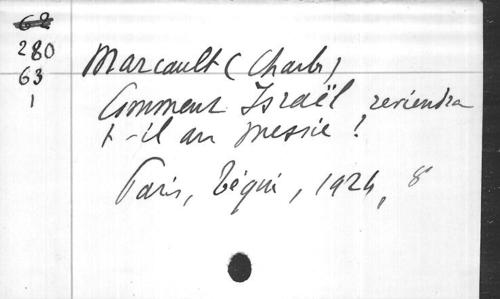 68
280
63
1
Marcault (Charles)
Comment Israël reviendra
t-il au messie ?
Paris, Téqui, 1924, 8°